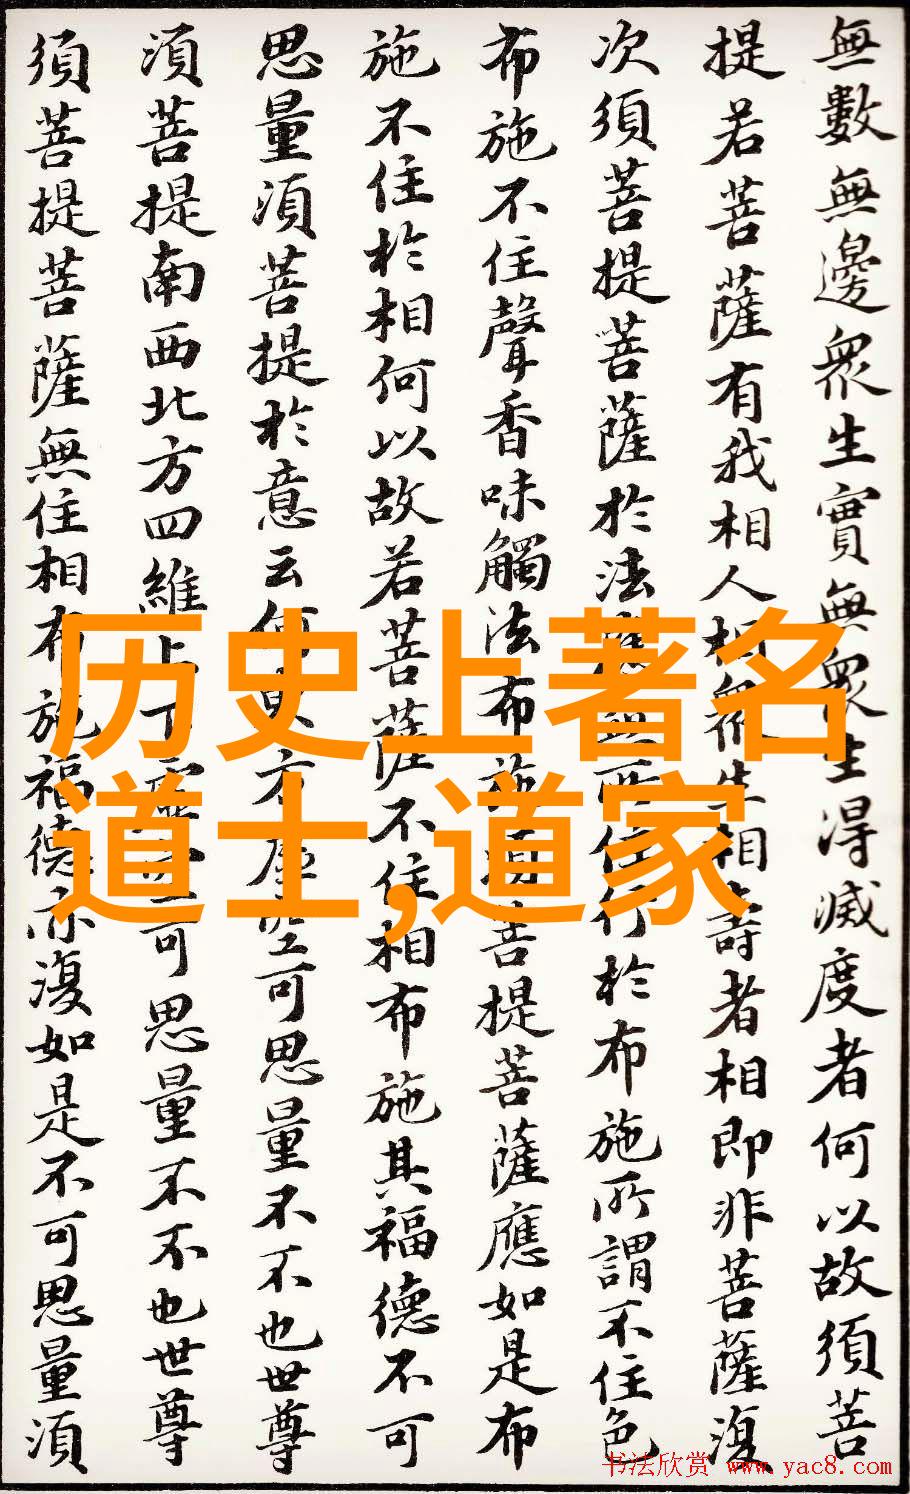 無數無邊眾生實無眾生得滅度者何以故須菩
提若菩薩有我相人相眾生相壽者相即非菩薩復
次須菩提菩薩於法應無所住行於布施所謂不住色
布施不住聲香味觸法布施須菩提菩薩應如是布
施不住於相何以故若菩薩不住相布施其福德不可
思量須菩提於意云何東方虛空可思量不不也世尊
須菩提南西北方四維上下虛空可思量不不也世尊
須菩提菩薩無住相布施福德亦復如是不可思量須
历史上著名
道士,道家
书法欣赏 www.yac8.com